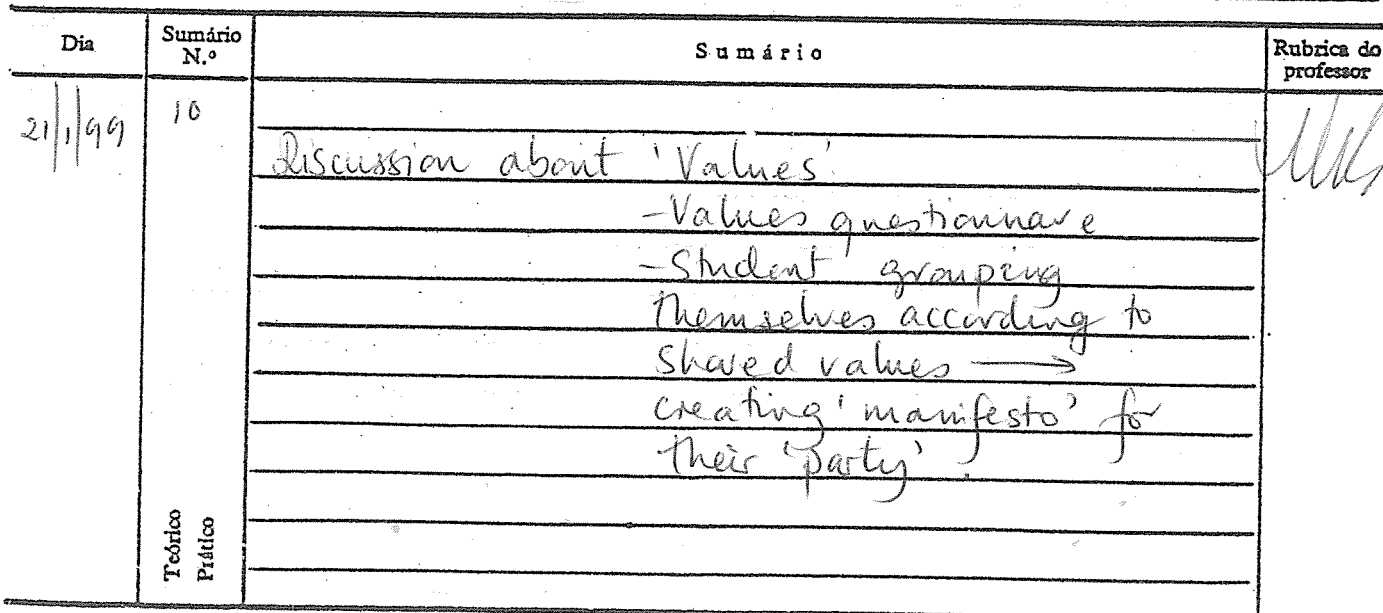 Dia
Sumário
N.º
Sumário
Rubrica do
professor
21/1/99
10
Discussion about 'Values'
-Values questionnare
-Student grouping
themselves according to
shared values →
creating 'manifesto' for
their 'party'.
Teórico
Prático